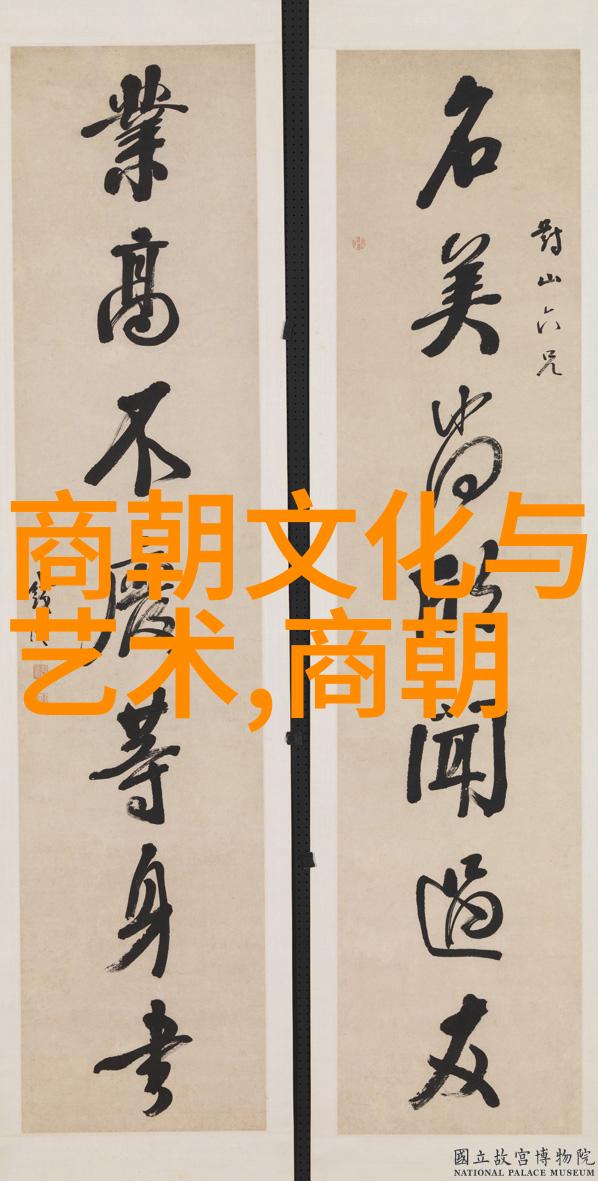 對山六兄
名美尚欣聞過友
業高不廢等身書
商朝文化与
艺术,商朝
國立故宮博物院
NATIONAL PALACE MUSEUM